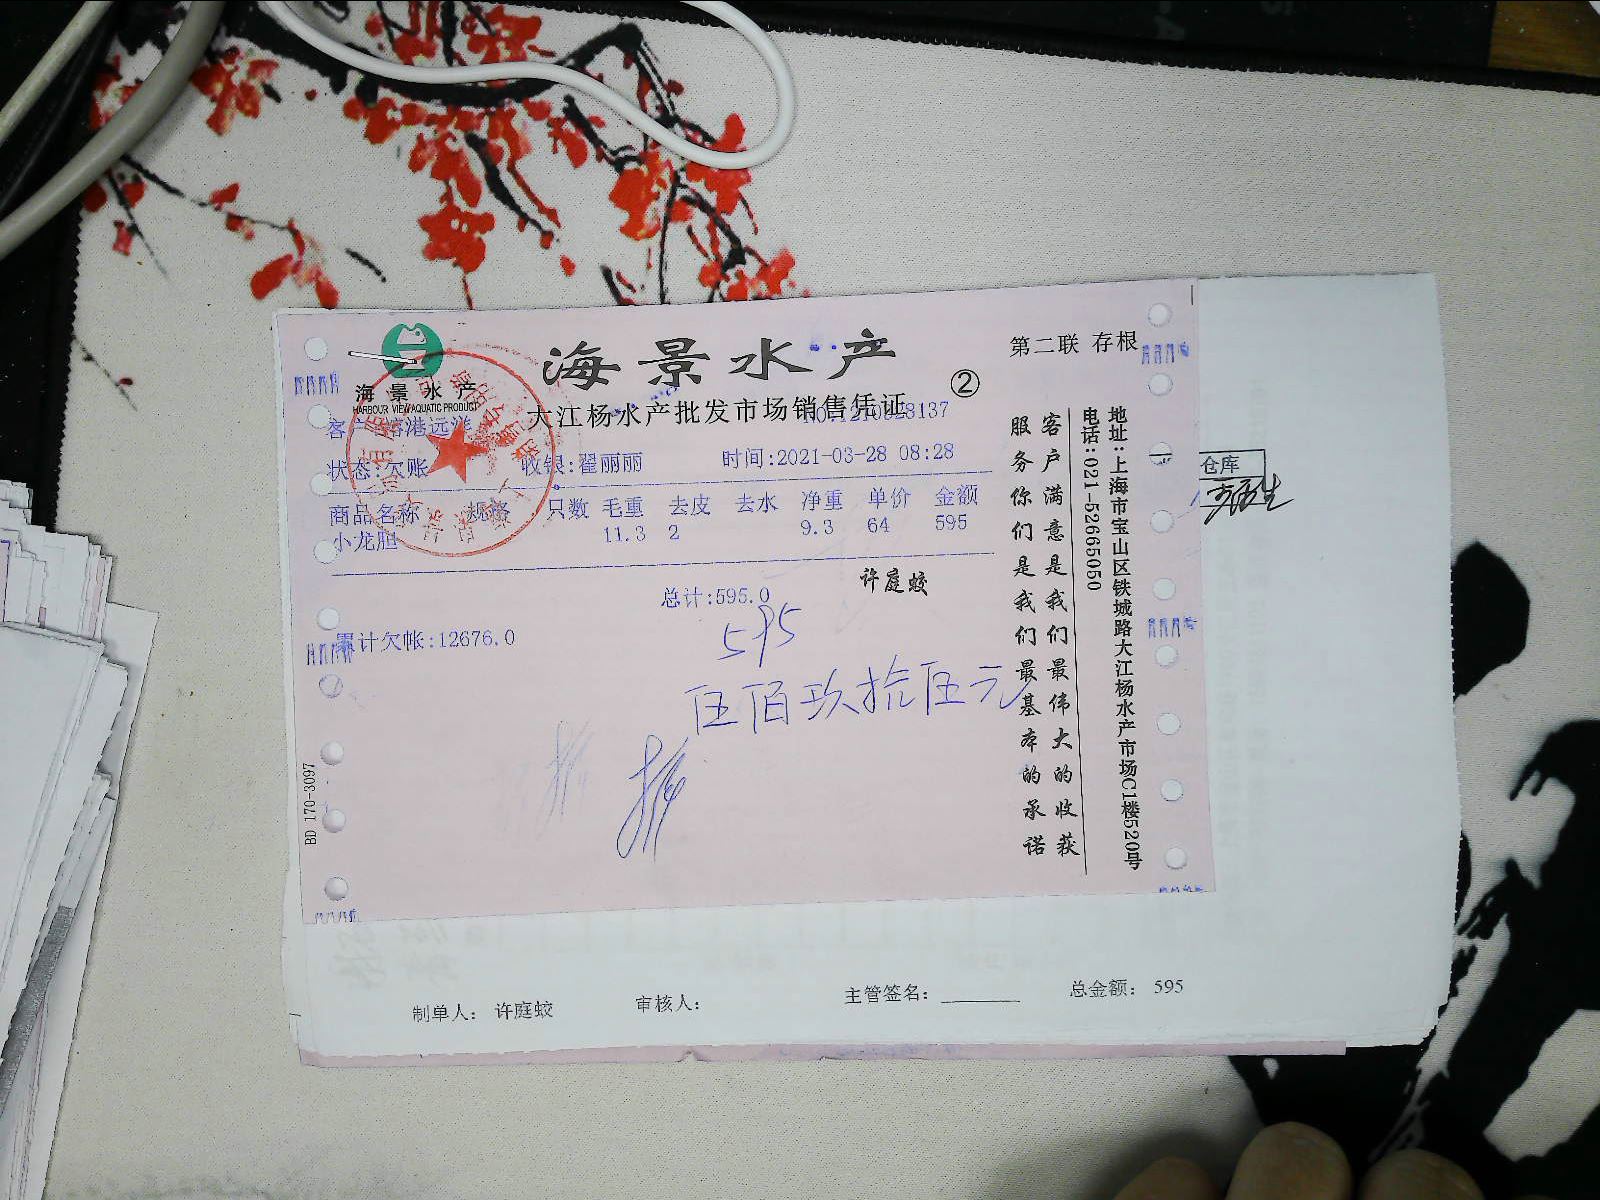 海景水产
HARBOUR VIEW AQUATIC PRODUCT
海景水产
②
第二联 存根
大江杨水产批发市场销售凭证
NO.:210328137
状态:欠账 收银:翟丽丽 时间:2021-03-28 08:28
商品名称 规格 只数 毛重 去皮 去水 净重 单价 金额
小龙胆 11.3 2 9.3 64 595
许庭蛟
总计:595.0
595
累计欠帐:12676.0
伍佰玖拾伍元
客户满意是我们最伟大的收获
服务你们是我们最基本的承诺
地址:上海市宝山区铁城路大江杨水产市场C1楼520号
电话:021-52665050
BD 170-3097
仓库
制单人: 许庭蛟 审核人: 主管签名: 总金额: 595